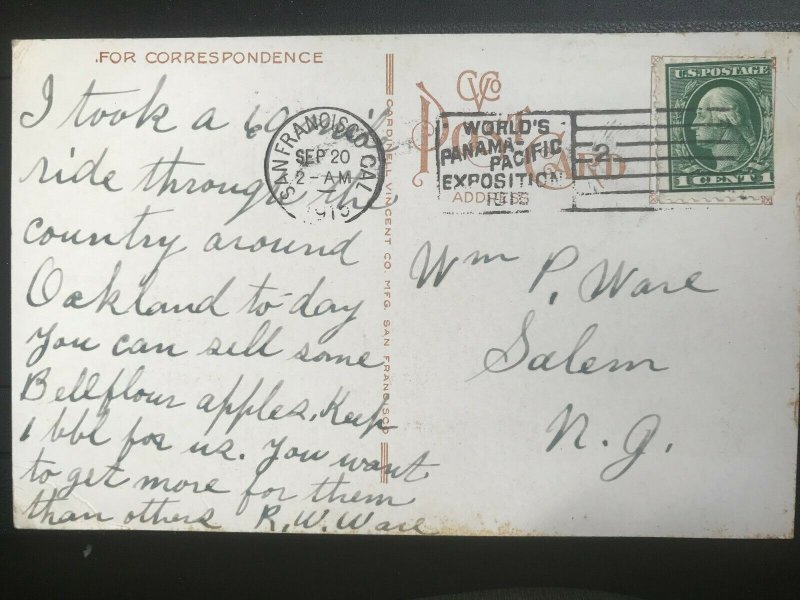 FOR CORRESPONDENCE
I took a 60 mile
ride through the
country around
Oakland to-day
You can sell some
Bellflour apples. Keep
1 bbl for us. You want
to get more for them
than others R. W. Ware
SAN FRANCISCO CAL.
SEP 20
2-AM
CARDINELL VINCENT CO. MFG. SAN FRANCISCO
CVCo
POST CARD
ADDRESS
WORLD'S
PANAMA-
PACIFIC
EXPOSITION
1915
2
U.S. POSTAGE
1 CENT 1
Wm P. Ware
Salem
N. J.